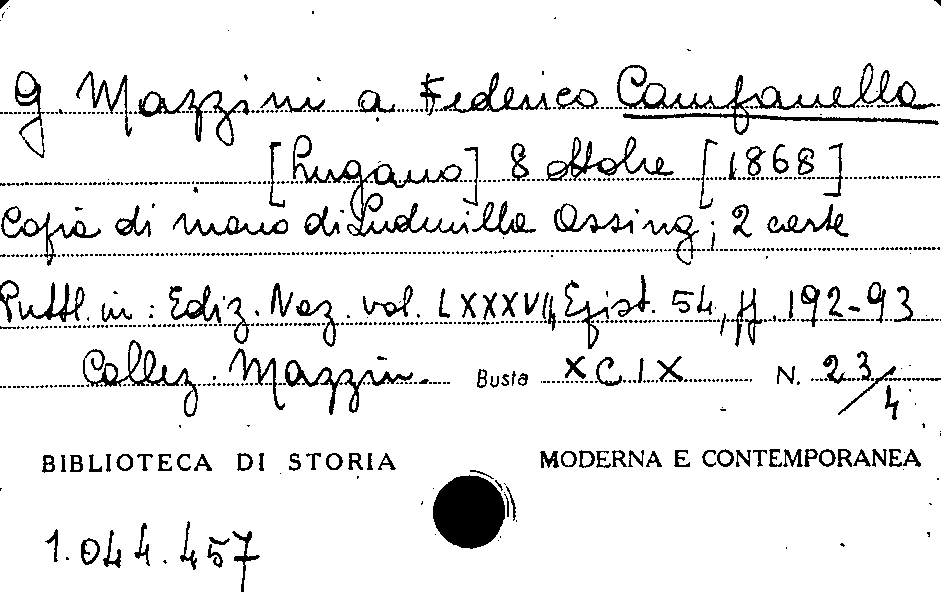 G. Mazzini a Federico Campanella
[Lugano] 8 ottobre [1868]
Copia di mano di Ludmilla Assing; 2 carte
Pubbl. in: Ediz. Naz. vol. LXXXVII, Epist. 54, pp. 192-93
Collez. Mazzini. Busta XCIX N. 23/4
BIBLIOTECA DI STORIA MODERNA E CONTEMPORANEA
1.044.457